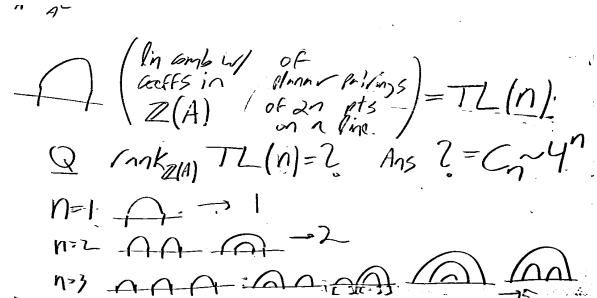 (lin comb w/ coeffs in ℤ(A), of planar pairings of 2n pts on a line.) = TL(n).
Q rank_ℤ(A) TL(n) = ? Ans ? = C_n ~ 4^n
n=1 → 1
n=2 → 2
n=3 → 5